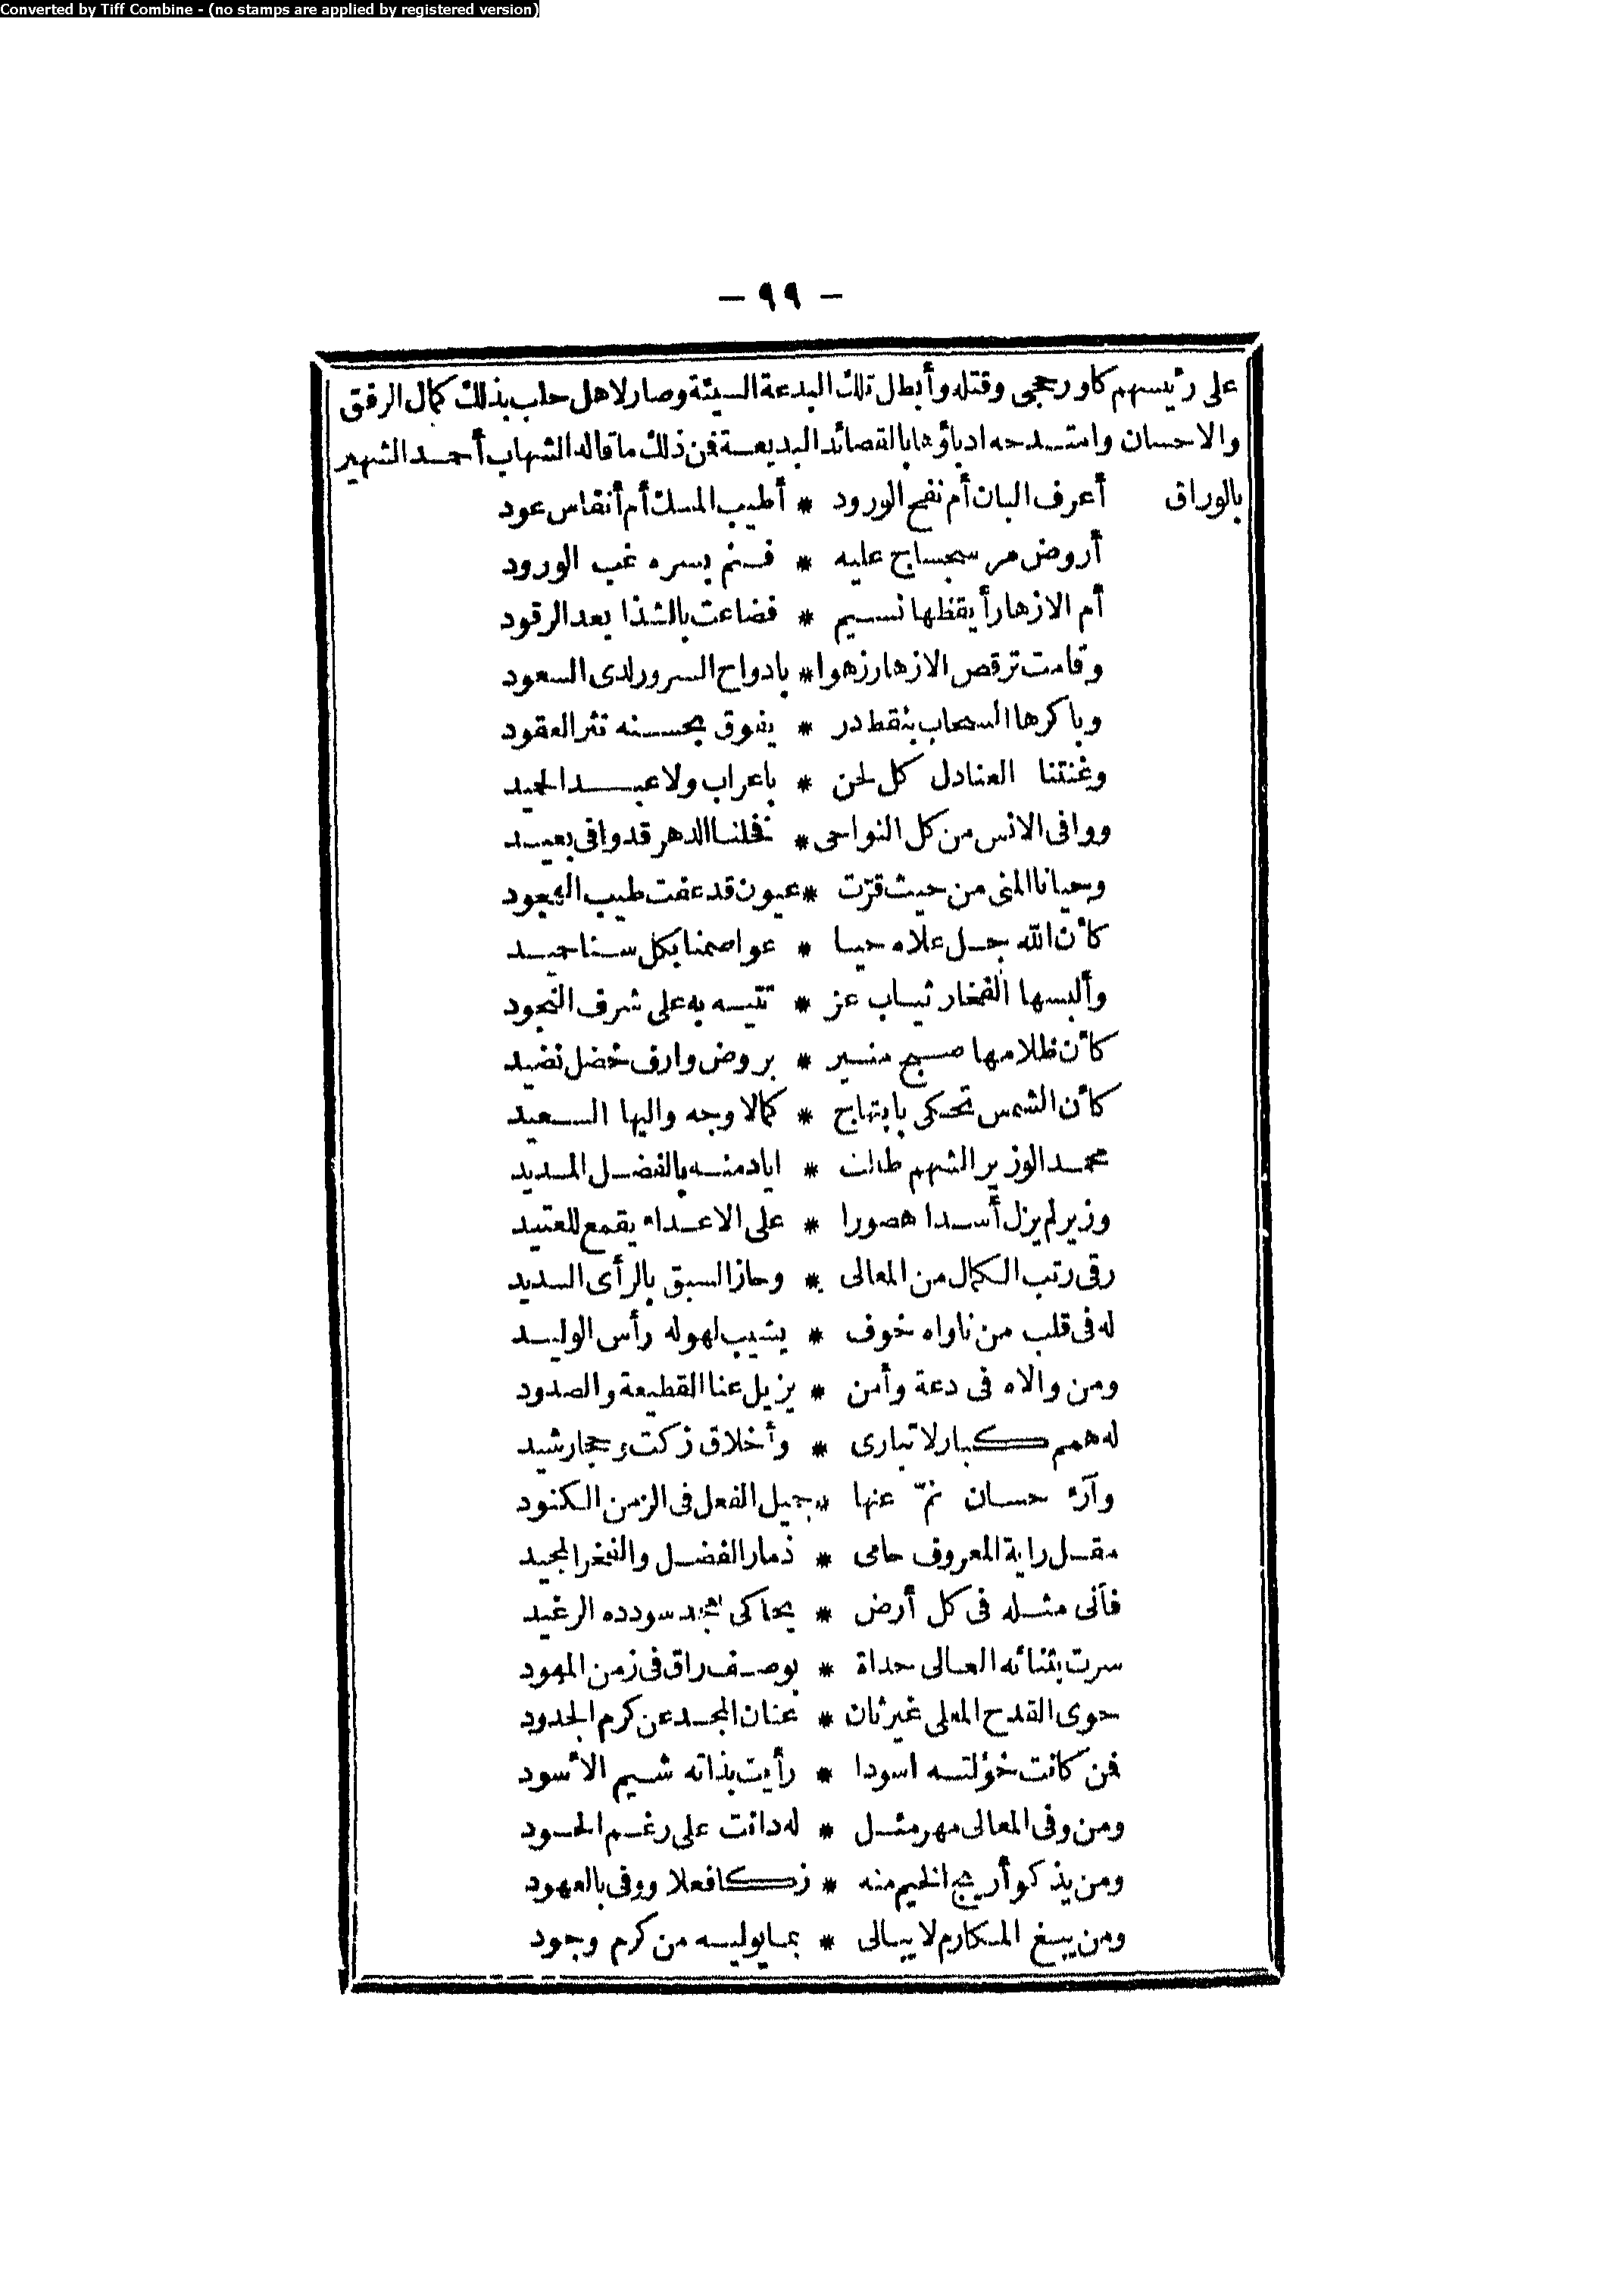 Converted by Tiff Combine - (no stamps are applied by registered version)
— ٩٩ —
على رئيسهم كاور حجى وقتله وأبطل تلك البدعة السيئة وصار لاهل حلب بذلك كمال الرفق
والاحسان وامتدحه ادباؤها بالقصائد البديعة فمن ذلك ما قاله الشهاب أحمد الشهير
بالوراق أعرف البان أم نفح الورود * أطيب المسك أم أنفاس عود
أروض مر سجساج عليه * فنم بسره غب الورود
أم الازهار أيقظها نسيم * فضاعت بالشذا بعد الرقود
وقامت ترقص الازهار زهوا * بادواح السرور لدى السعود
وباكرها السحاب بنقط در * يفوق بحسنه نثر العقود
وغنتنا العنادل كل لحن * باعراب ولا عبد الحميد
ووافى الانس من كل النواحى * نخلنا الدهر قد وافى بعيد
وحيانا المنى من حيث قرّت * عيون قد عفت طيب الهجود
كأن الله جل علاه حيا * عواصمنا بكل سنا حميد
وألبسها الفخار ثياب عز * تتيه به على شرف النجود
كأن ظلامها صبح منير * بروض وارف خضل نضيد
كأن الشمس تحكى بابتهاج * كمالا وجه واليها السعيد
محمد الوزير الشهم طالت * اياد منه بالفضل المديد
وزير لم يزل أسدا هصورا * على الاعداء يقمع للعتيد
رقى رتب الكمال من المعالى * وحاز السبق بالرأى السديد
له فى قلب من ناواه خوف * يشيب لهوله رأس الوليد
ومن والاه فى دعة وأمن * يزيل عنا القطيعة والصدود
له همم كبار لا تبارى * وأخلاق زكت وحجا رشيد
وآراء حسان نمّ عنها * جميل الفعل فى الزمن الكنود
مقل راية المعروف حامى * ذمار الفضل والفخر المجيد
فأنى مثله فى كل أرض * يحاكى مجد سودده الرغيد
سرت بثنائه العالى حداة * بوصف راق فى زمن المهود
حوى القدح المعلى غير ثان * عنان المجد عن كرم الجدود
فمن كانت خؤلته اسودا * رأيت بذاته شيم الأسود
ومن وفى المعالى مهر مثل * له دانت على رغم الحسود
ومن يذكو أريج الخيم منه * زكا فعلا ووفى بالعهود
ومن يبغ المكارم لا يبالى * بما يوليه من كرم وجود